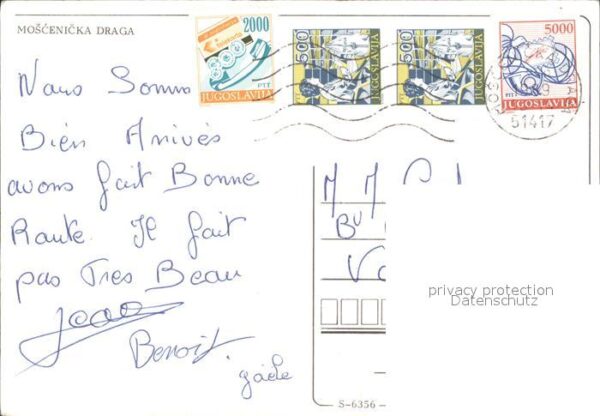 MOŠĆENIČKA DRAGA
2000
PTT
JUGOSLAVIJA
500
JUGOSLAVIJA
500
JUGOSLAVIJA
5000
PTT
JUGOSLAVIJA
51417
Nous Somm
Bien Arrivés
avons fait Bonne
Route. Il fait
pas Tres Beau
Benoit.
gaële
M M
privacy protection
Datenschutz
S-6356